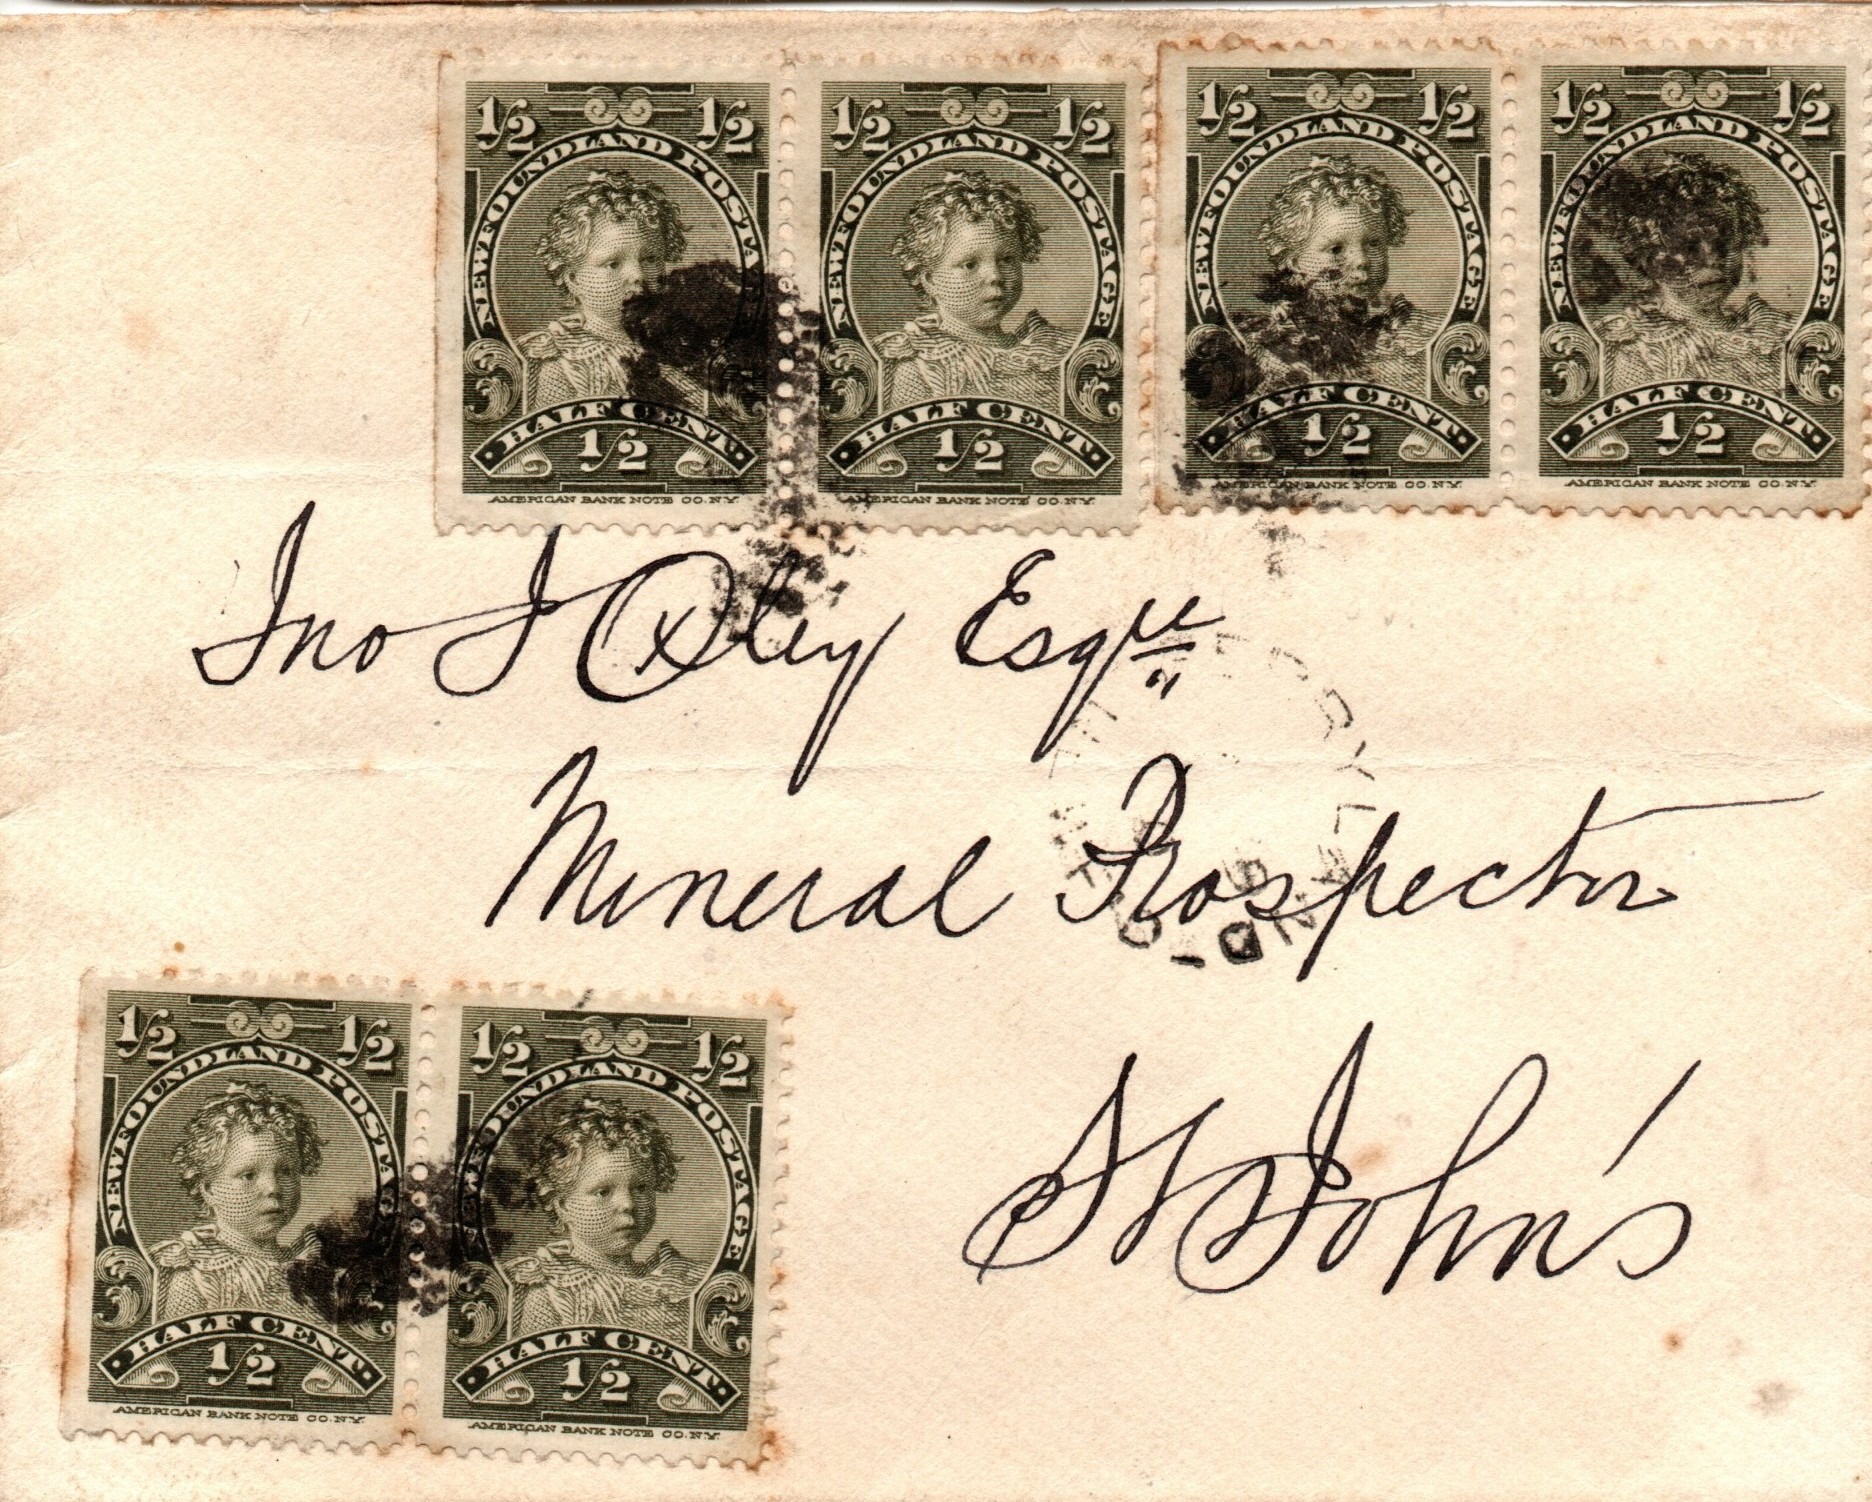 1/2 1/2 1/2 1/2 1/2 1/2 1/2 1/2
NEWFOUNDLAND POSTAGE NEWFOUNDLAND POSTAGE NEWFOUNDLAND POSTAGE NEWFOUNDLAND POSTAGE
HALF CENT HALF CENT HALF CENT HALF CENT
1/2 1/2 1/2 1/2
AMERICAN BANK NOTE CO. N.Y. AMERICAN BANK NOTE CO. N.Y. AMERICAN BANK NOTE CO. N.Y. AMERICAN BANK NOTE CO. N.Y.
Jno J Oxley Esqre
Mineral Prospector
St John's
1/2 1/2 1/2 1/2
NEWFOUNDLAND POSTAGE NEWFOUNDLAND POSTAGE
HALF CENT HALF CENT
1/2 1/2
AMERICAN BANK NOTE CO. N.Y. AMERICAN BANK NOTE CO. N.Y.